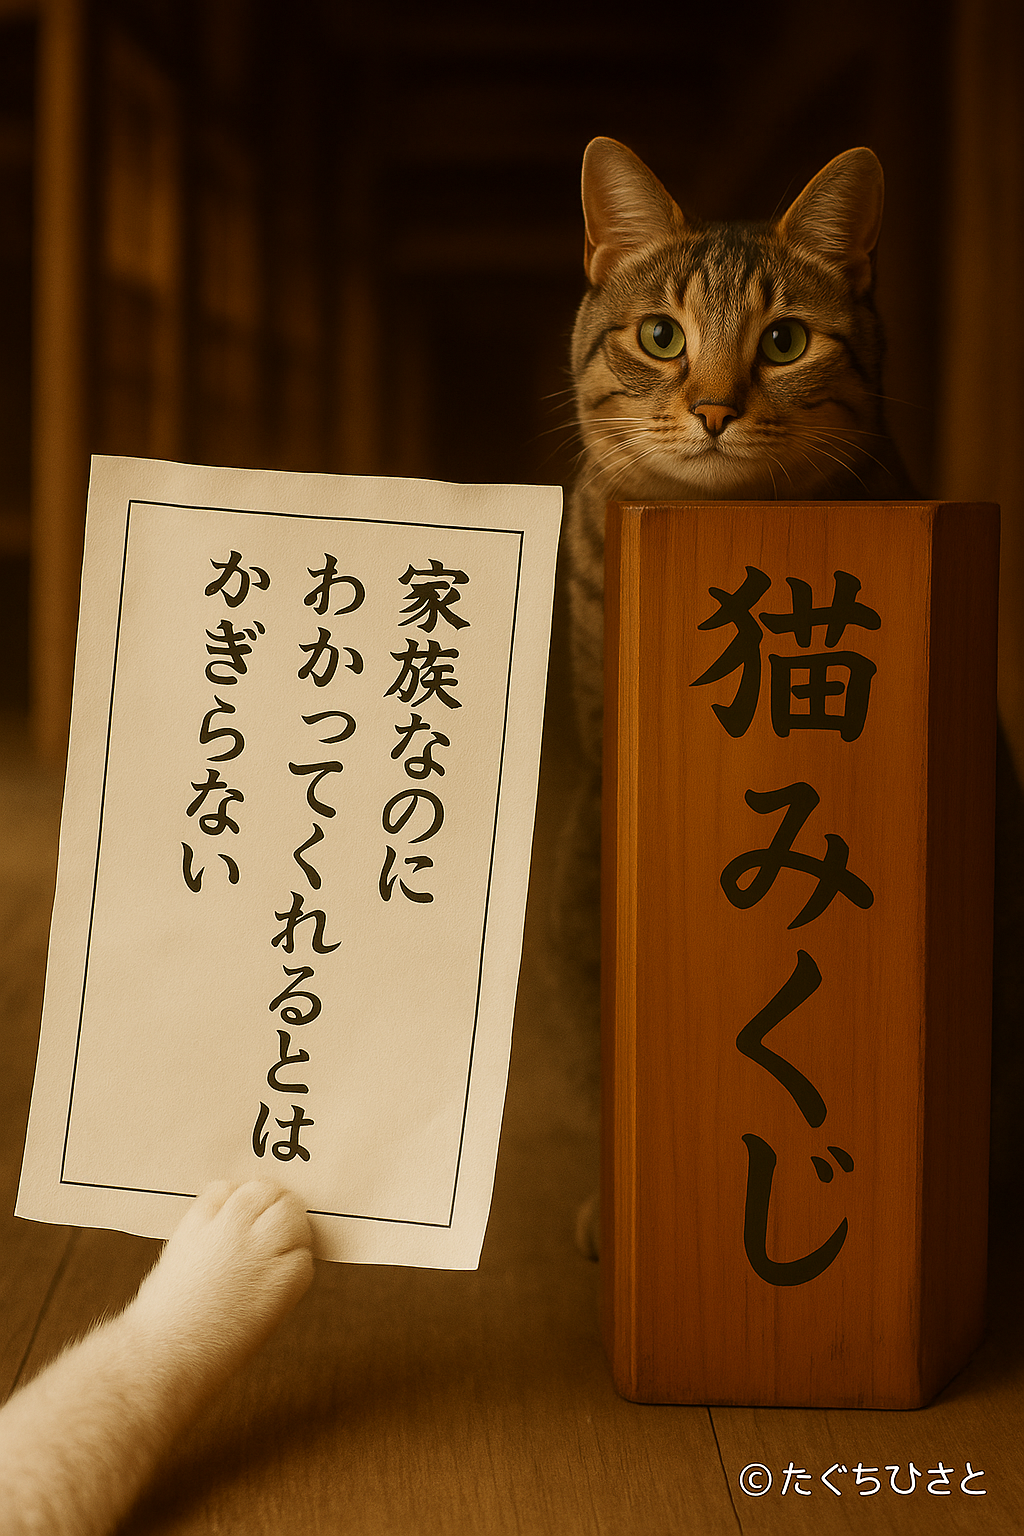 家族なのに
わかってくれるとは
かぎらない
猫みくじ
©たぐちひさと